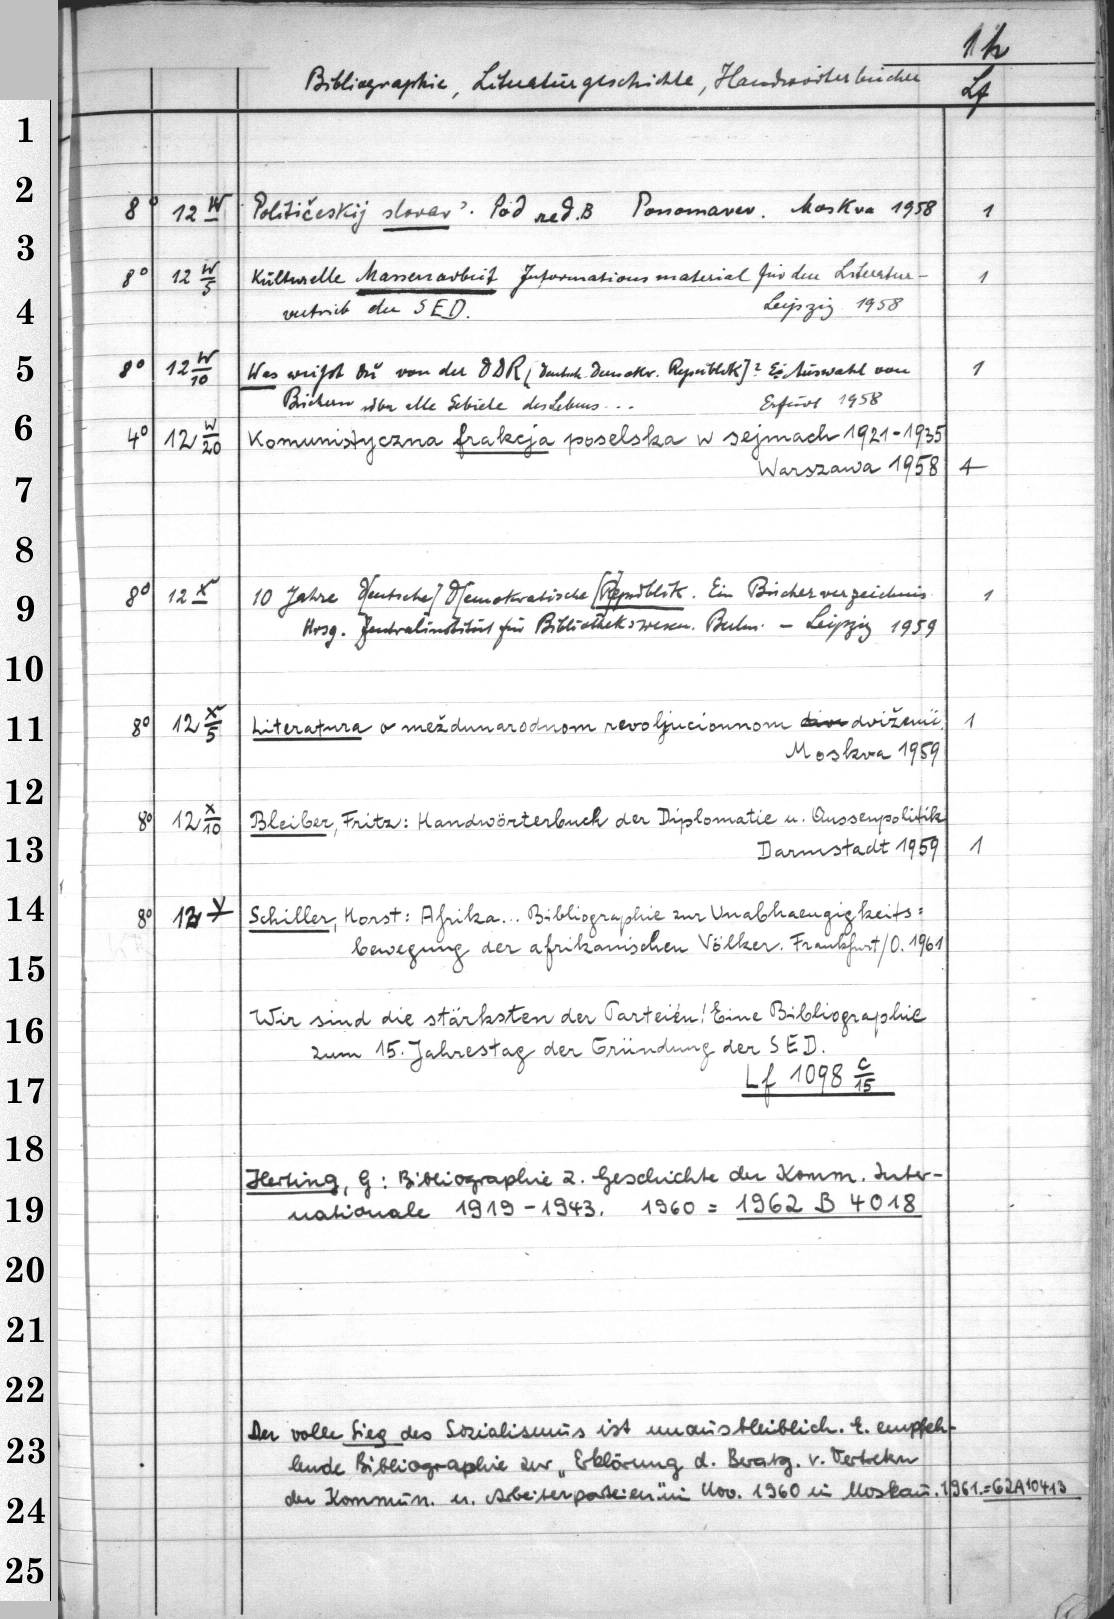 1h
Bibliographie, Literaturgeschichte, Handwörterbücher
Lf
1
2
8° 12 W Političeskij slovar'. Pod red. B Ponomarev. Moskva 1958 1
3
8° 12 W/5 Kulturelle Massenarbeit Informationsmaterial für den Literatur- 1
4 vertrieb der SED. Leipzig 1958
5 8° 12 W/10 Was weißt Du von der DDR [Deutsch. Demokr. Republik]? E. Auswahl von 1
Büchern über alle Gebiete des Lebens... Erfurt 1958
6 4° 12 W/20 Komunistyczna frakcja poselska w sejmach 1921-1935
Warszawa 1958 4
7
8
9 8° 12 X 10 Jahre D[eutsche] D[emokratische] [R]epublik. Ein Bücherverzeichnis 1
Hrsg. Zentralinstitut für Bibliothekswesen. Berlin. - Leipzig 1959
10
11 8° 12 X/5 Literatura o meždunarodnom revoljucionnom dviženii. 1
Moskva 1959
12
8° 12 X/10 Bleiber, Fritz: Handwörterbuch der Diplomatie u. Aussenpolitik
13 Darmstadt 1959 1
14 8° 12 Y Schiller, Horst: Afrika... Bibliographie zur Unabhaengigkeits=
bewegung der afrikanischen Völker. Frankfurt/O. 1961
15
16 Wir sind die stärksten der Parteien! Eine Bibliographie
zum 15. Jahrestag der Gründung der SED.
17 Lf 1098 C/15
18
Herting, G: Bibliographie z. Geschichte der Komm. Inter-
19 nationale 1919-1943. 1960 = 1962 B 4018
20
21
22
Der volle Sieg des Sozialismus ist unausbleiblich. E. empfeh-
23 lende Bibliographie zur „Erklärung d. Beratg. v. Vertretern
24 der Kommun. u. Arbeiterparteien" im Nov. 1960 in Moskau. 1961.=62A10413
25